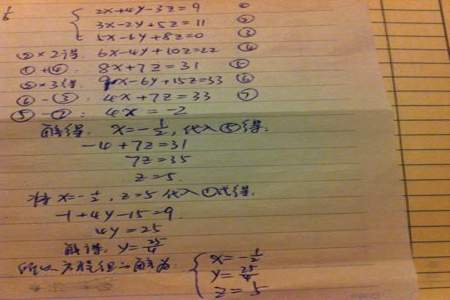 2x+4y-3z=9 ①
3x-2y+5z=11 ②
5x-6y+8z=0 ③
②×2得 6x-4y+10z=22 ④
①+④: 8x+7z=31 ⑤
②×3得 9x-6y+15z=33 ⑥
⑥-③: 4x+7z=33 ⑦
⑤-⑦: 4x=-2
解得. x=-1/2, 代入⑤得.
-4+7z=31
7z=35
z=5.
将 x=-1/2, z=5 代入①式得.
-1+4y-15=9
4y=25
解得. y=25/4
所以方程组的解为 { x=-1/2
y=25/4
z=5